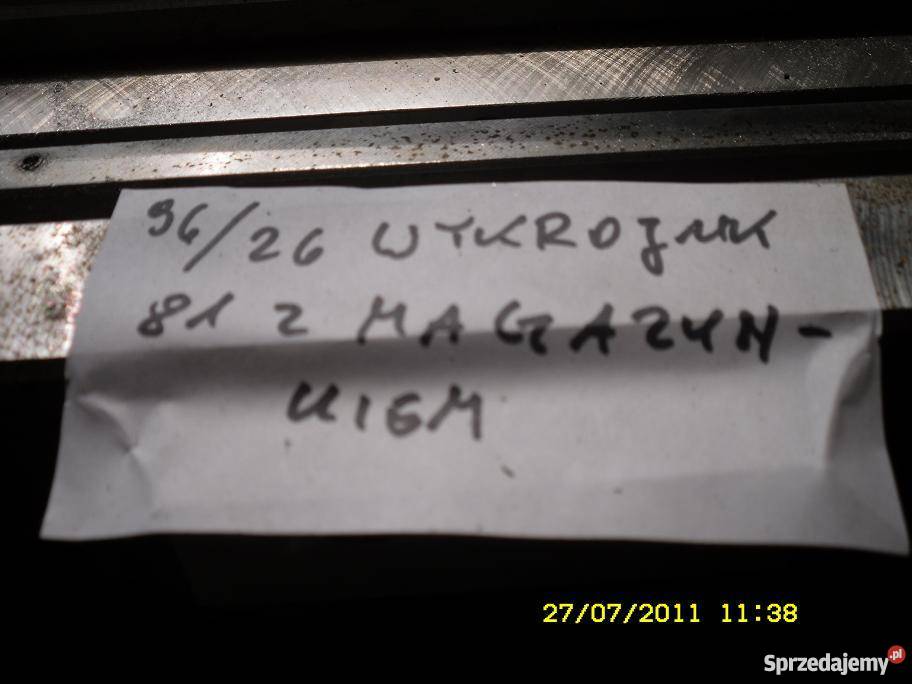 96/26 WYKROJNIK
81 Z MAGAZYN-
KIEM
27/07/2011 11:38
Sprzedajemy.pl